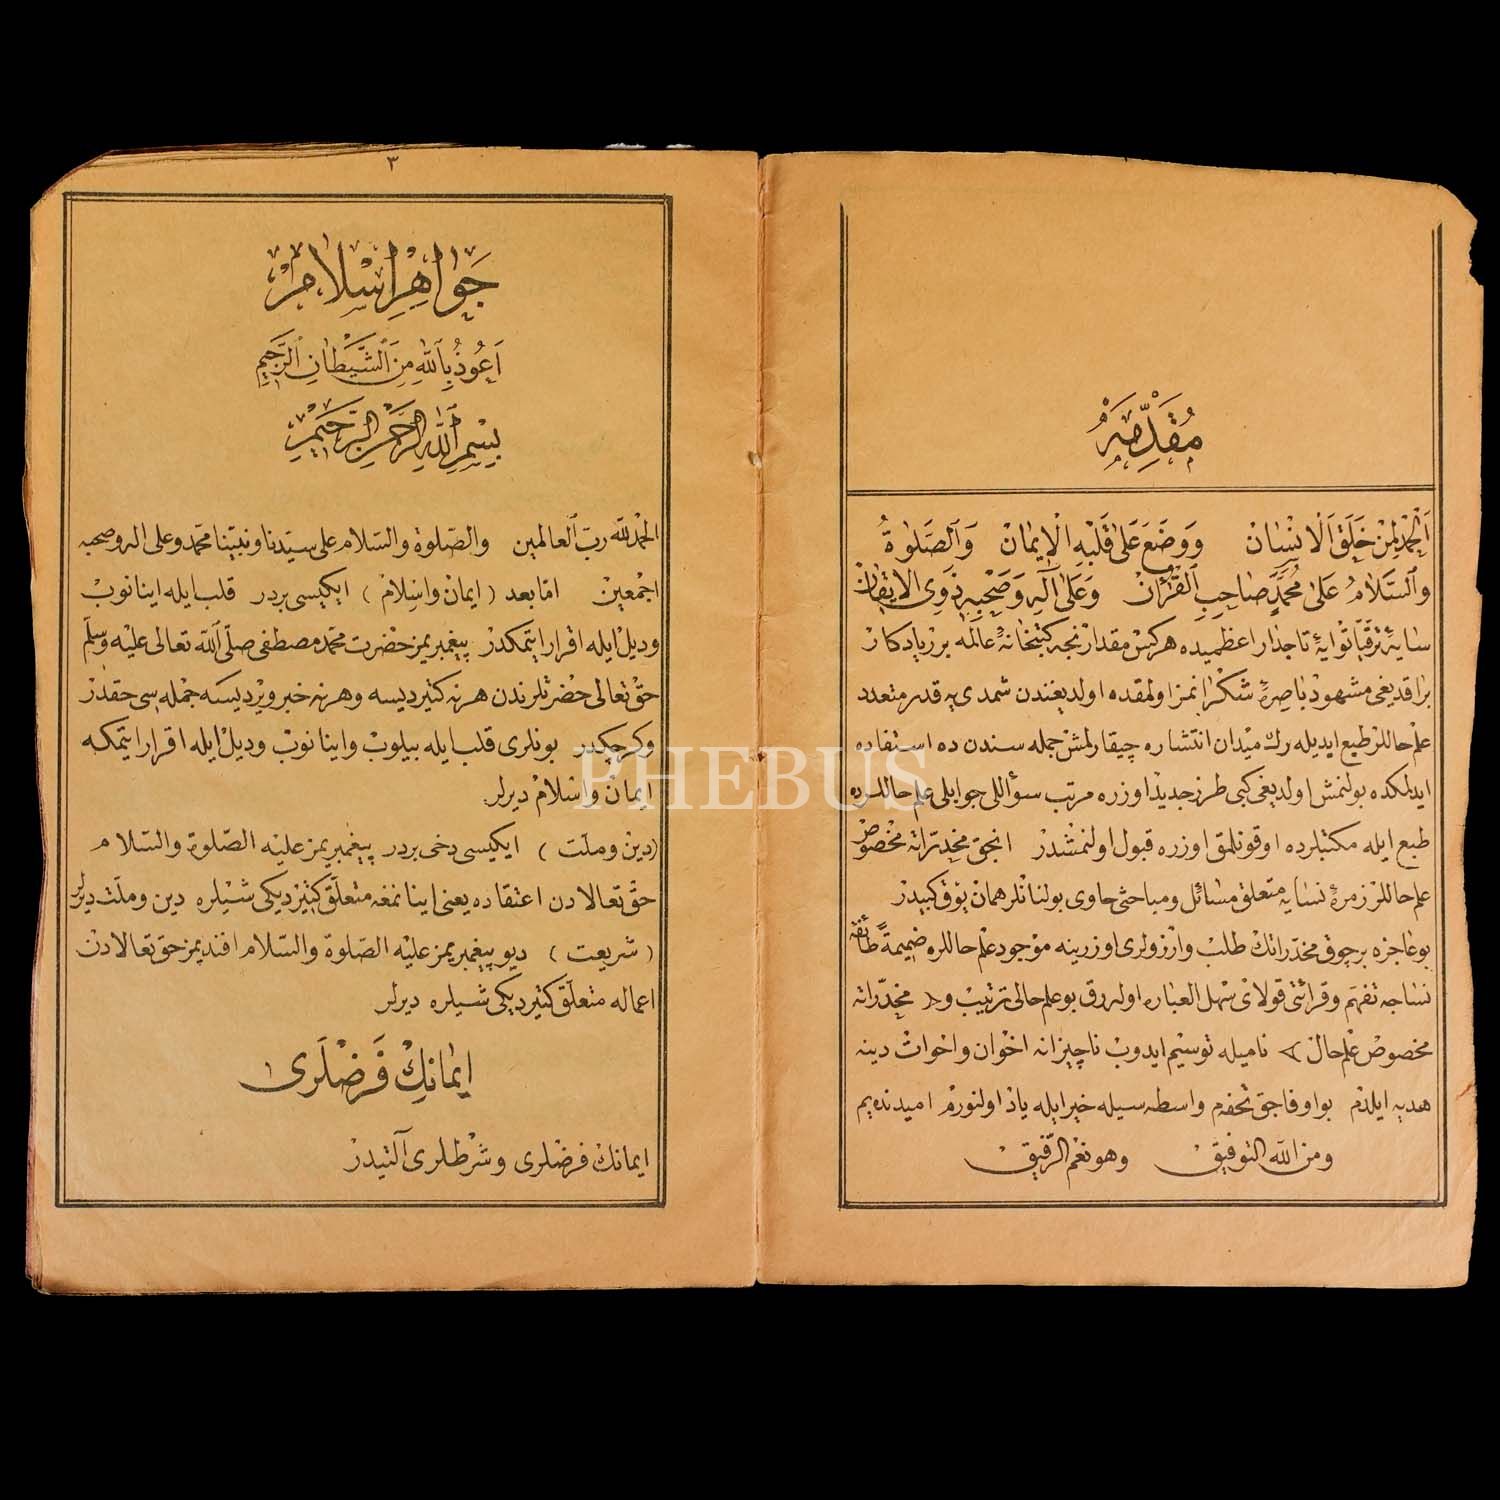 مُقَدِّمَه
اَلْحَمْدُ لِمَنْ خَلَقَ الْاِنْسَانْ وَوَضَعَ عَلَى قَلْبِهِ الْاِيمَانْ وَالصَّلٰوةُ
وَالسَّلَامُ عَلٰى مُحَمَّدٍ صَاحِبِ الْقُرْاٰنْ وَعَلٰى اٰلِهِ وَصَحْبِهِ ذَوِى الْاِيقَانْ
سايهٔ ترقياتوايهٔ تاجدار اعظميده هركس مقدارنجه كتبخانهٔ عالمه بر يادكار
براقديغى مشهود باصرهٔ شكرانمز اولمقده اولديغندن شمدى يه قدر متعدد
علم حاللر طبع ايديله رك ميدان انتشاره چيقارلمش جمله سندن ده استفاده
ايدلمكده بولنمش اولديغى كبى طرز جديد اوزره مرتب سؤاللى جوابلى علم حاللرده
طبع ايله مكتبلرده اوقونلمق اوزره قبول اولنمشدر انجق مخدراته مخصوص
علم حاللر زمرهٔ نسايه متعلق مسائل و مباحثى حاوى بولنانلر همان يوق كبيدر
بو عاجزه برچوق مخدراتك طلب وارزولرى اوزرينه موجود علم حاللره ضميمةً طائفهٔ
نساجه تفهم وقرائتى قولاى سهل العباره اوله رق بو علم حالى ترتيب و < مخدراته
مخصوص علم حال > ناميله توسيم ايدوب ناچيزانه اخوان واخوات دينه
هديه ايلدم بو اوفاجق تحفه م واسطه سيله خير ايله ياد اولنورم اميدنده يم
ومن الله التوفيق وهو نعم الرفيق
٣
جَوَاهِرِ اِسْلَامْ
اَعُوذُ بِاللّٰهِ مِنَ الشَّيْطَانِ الرَّجِيمِ
بِسْمِ اللّٰهِ الرَّحْمٰنِ الرَّحِيمِ
الحمد لله رب العالمين والصلوة والسلام على سيدنا ونبينا محمد وعلى اله وصحبه
اجمعين اما بعد ( ايمان واسلام ) ايكيسى بردر قلب ايله اينانوب
وديل ايله اقرار ايتمكدر پيغمبريمز حضرت محمد مصطفى صلى الله تعالى عليه وسلم
حق تعالى حضرتلرندن هر نه كتيرديسه وهر نه خبر ويرديسه جمله سى حقدر
وكرچكدر بونلرى قلب ايله بيلوب واينانوب وديل ايله اقرار ايتمكه
ايمان واسلام ديرلر
( دين وملت ) ايكيسى دخى بردر پيغمبريمز عليه الصلوة والسلام
حق تعالادن اعتقاده يعنى اينانمغه متعلق كتيرديكى شيلره دين وملت ديرلر
( شريعت ) ديو پيغمبريمز عليه الصلوة والسلام افنديمز حق تعالادن
اعماله متعلق كتيرديكى شيلره ديرلر
ايمانك فرضلرى
ايمانك فرضلرى وشرطلرى آلتيدر
PHEBUS